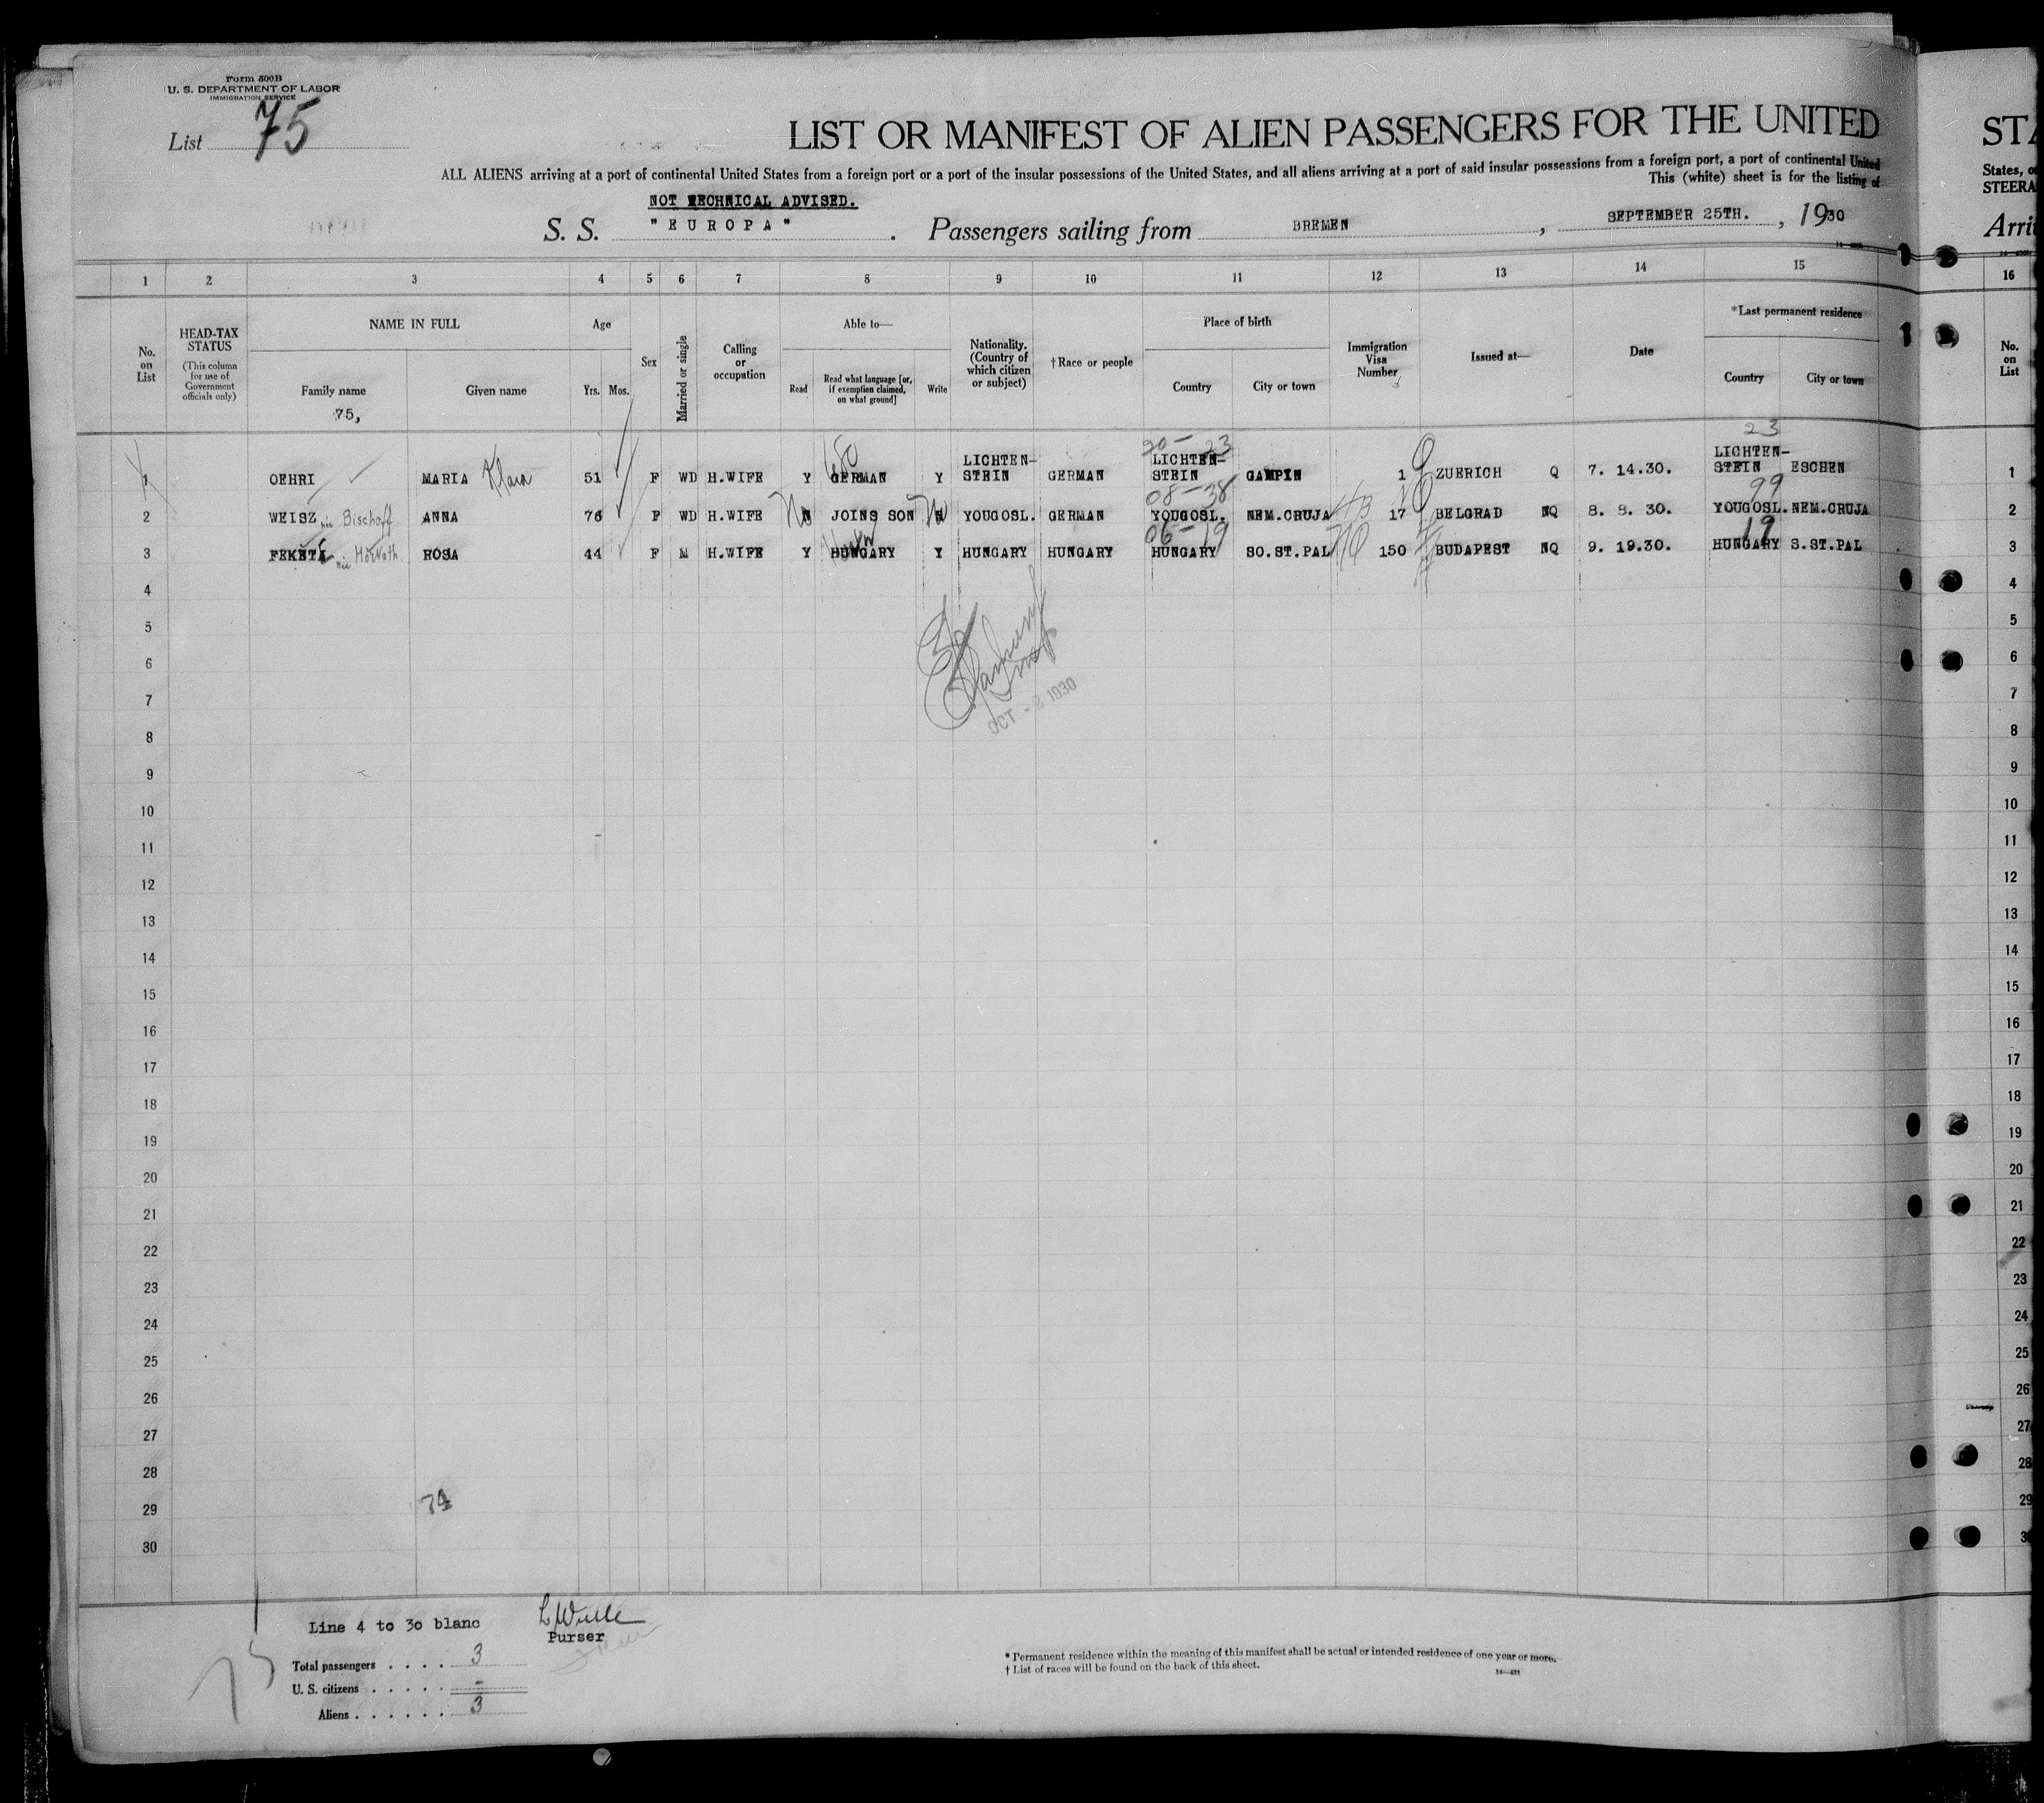 Form 500B
U. S. DEPARTMENT OF LABOR
IMMIGRATION SERVICE
List 75
LIST OR MANIFEST OF ALIEN PASSENGERS FOR THE UNITED
STA
ALL ALIENS arriving at a port of continental United States from a foreign port or a port of the insular possessions of the United States, and all aliens arriving at a port of said insular possessions from a foreign port, a port of continental United
States, o
This (white) sheet is for the listing of
STEERA
NOT TECHNICAL ADVISED.
S. S. "EUROPA". Passengers sailing from BREMEN, SEPTEMBER 25TH., 1930
Arri
1 2 3 4 5 6 7 8 9 10 11 12 13 14 15 16
No. on List
HEAD-TAX STATUS
(This column for use of Government officials only)
NAME IN FULL
Family name
Given name
75,
Age
Yrs. Mos.
Sex
Married or single
Calling or occupation
Able to—
Read
Read what language [or, if exemption claimed, on what ground]
Write
Nationality. (Country of which citizen or subject)
†Race or people
Place of birth
Country
City or town
Immigration Visa Number
Issued at—
Date
*Last permanent residence
Country
City or town
No. on List
20- 23
23
1 OEHRI MARIA Klara 51 F WD H.WIFE Y GERMAN Y LICHTEN-STEIN GERMAN LICHTEN-STEIN GAMPIN 1 ZUERICH Q 7. 14.30. LICHTEN-STEIN ESCHEN 1
08-38
99
2 WEISZ née Bischoff ANNA 76 F WD H.WIFE No JOINS SON No YOUGOSL. GERMAN YOUGOSL. NEM.CRUJA 17 BELGRAD NQ 8. 8. 30. YOUGOSL. NEM.CRUJA 2
06-19
19
3 FEKETE née Horvath ROSA 44 F M H.WIFE Y HUNGARY Y HUNGARY HUNGARY HUNGARY SO.ST.PAL 150 BUDAPEST NQ 9. 19.30. HUNGARY S.ST.PAL 3
4 4
5 5
6 6
7 7
OCT - 2 1930
8 8
9 9
10 10
11 11
12 12
13 13
14 14
15 15
16 16
17 17
18 18
19 19
20 20
21 21
22 22
23 23
24 24
25 25
26 26
27 27
28 28
74
29 29
30 3
Line 4 to 30 blanc
Purser
75
Total passengers . . . . 3
U. S. citizens . . . . . -
Aliens . . . . . . 3
* Permanent residence within the meaning of this manifest shall be actual or intended residence of one year or more.
† List of races will be found on the back of this sheet.